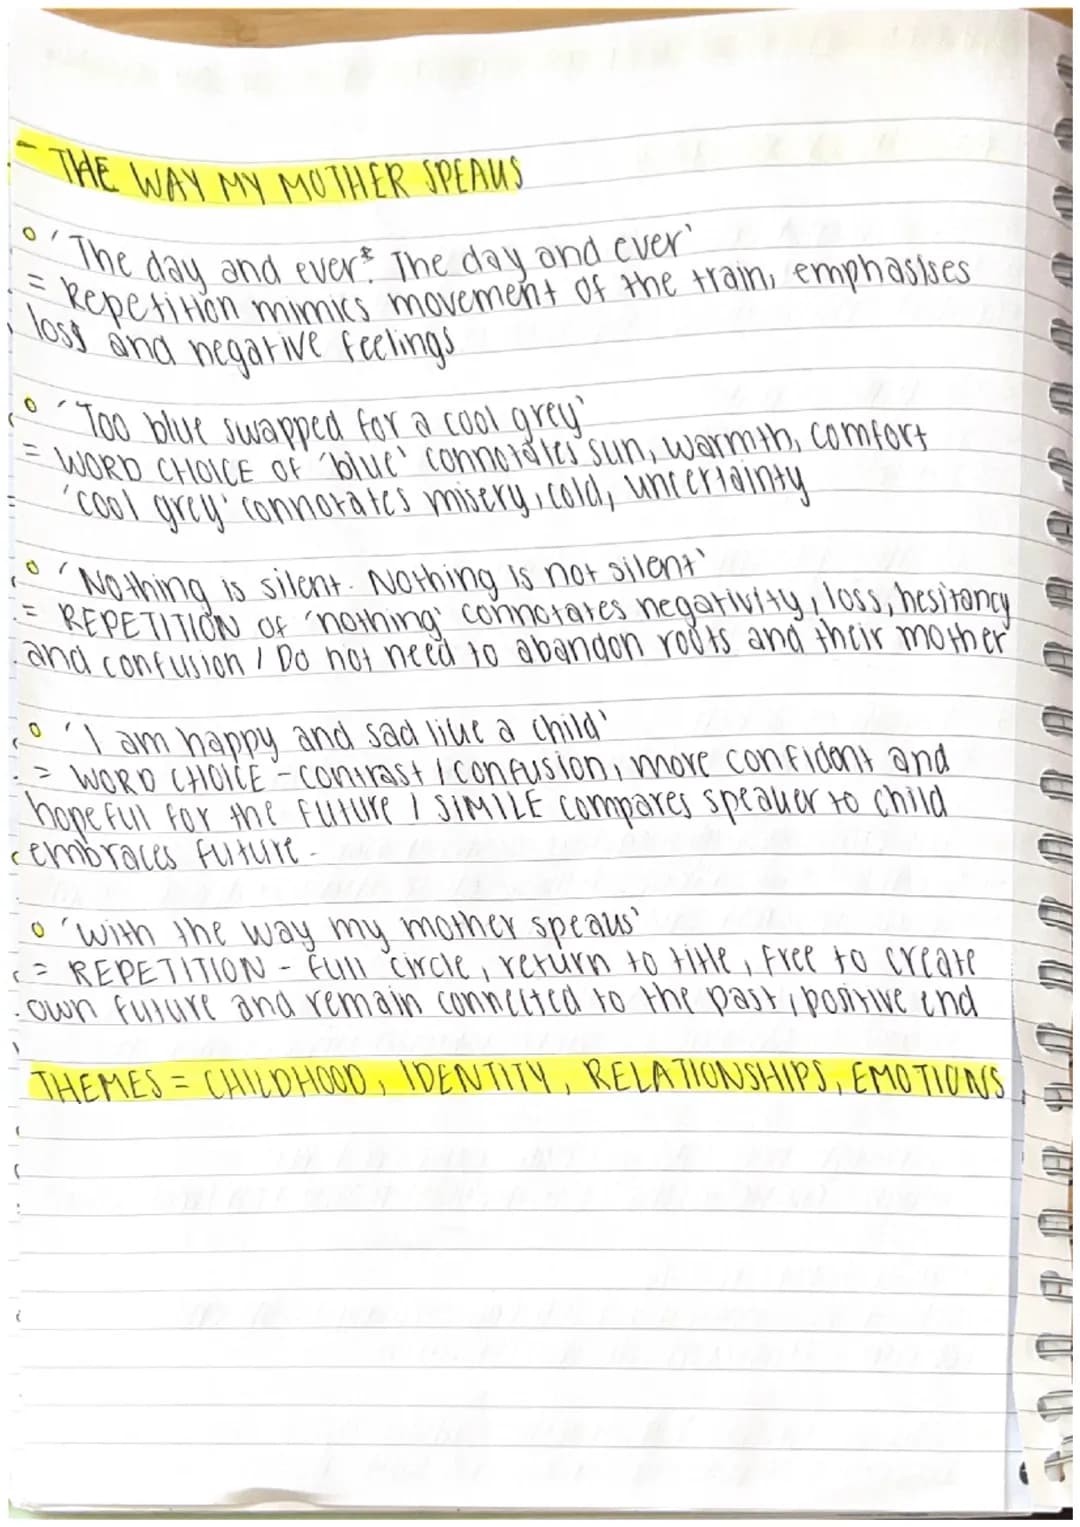 - THE WAY MY MOTHER SPEAKS
'The day and ever* The day and ever'
= Repetition mimics movement of the train, emphasises
loss and negative feelings
'Too blue swapped for a cool grey'
= WORD CHOICE OF 'blue' connotates sun, warmth, comfort
'cool grey' connotates misery, cold, uncertainty
'Nothing is silent. Nothing is not silent'
= REPETITION OF 'nothing' connotates negativity, loss, hesitancy
and confusion / Do not need to abandon roots and their mother
'I am happy and sad like a child'
= WORD CHOICE - contrast / confusion, more confident and
hopeful for the future / SIMILE compares speaker to child
embraces future -
'with the way my mother speaks'
= REPETITION - full circle, return to title, free to create
own future and remain connected to the past, positive end
THEMES = CHILDHOOD, IDENTITY, RELATIONSHIPS, EMOTIONS